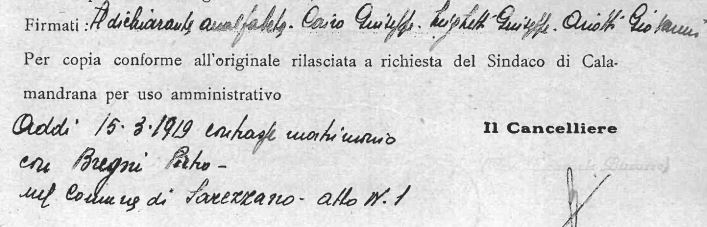 Firmati: Il dichiarante analfabeta. Cairo Giuseppe. Luighetti Giuseppe. Ariotti Giovanni
Per copia conforme all'originale rilasciata a richiesta del Sindaco di Cala-
mandrana per uso amministrativo
Addi 15.3.1919 contrasse matrimonio
Il Cancelliere
con Bregni Pietro -
nel Comune di Sarezzano - atto N. 1